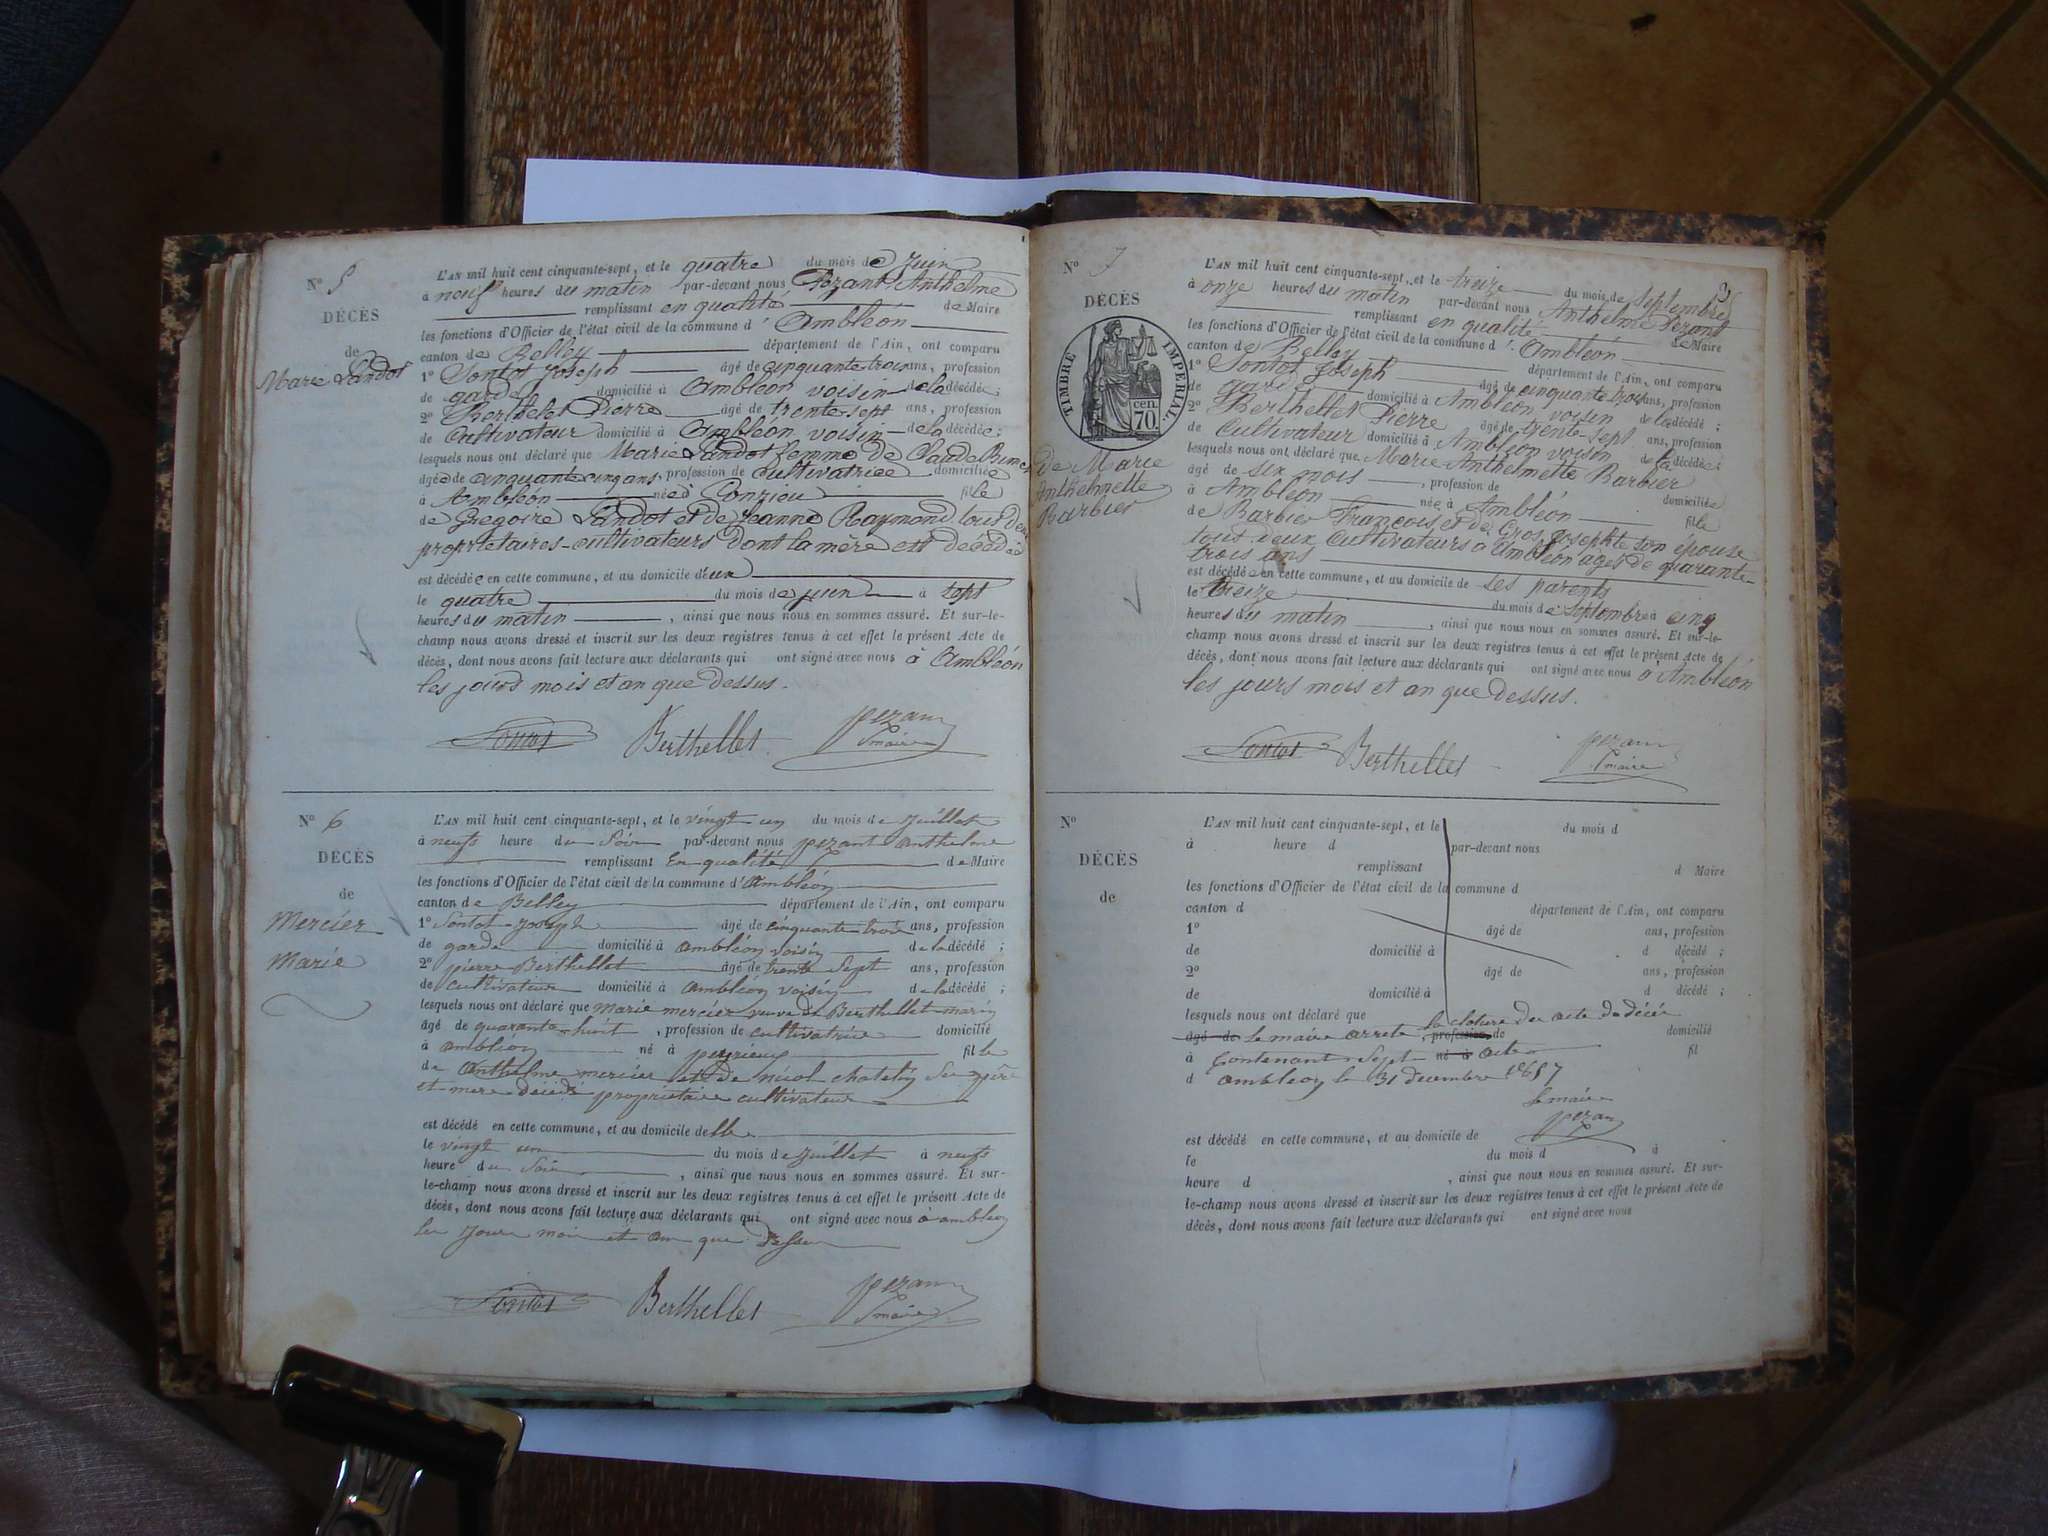 N° 5
DÉCÈS
de
Marie Landot
L'AN mil huit cent cinquante-sept, et le quatre du mois de Juin
à neuf heures du matin par-devant nous Pezant Anthelme
remplissant en qualité de Maire
les fonctions d'Officier de l'état civil de la commune d' Ambléon
canton de Belley département de l'Ain, ont comparu
1° Sontot Joseph âgé de cinquante trois ans, profession
de garde domicilié à Ambléon voisin de la décédée;
2° Berthelet Pierre âgé de trente sept ans, profession
de Cultivateur domicilié à Ambléon voisin de la décédée;
lesquels nous ont déclaré que Marie Landot femme de Claude
âgée de cinquante cinq ans, profession de Cultivatrice domiciliée
à Ambléon née à Conzieu fille
de Grégoire Landot et de Jeanne Raymond tous deux
propriétaires-cultivateurs dont la mère est décédée
est décédée en cette commune, et au domicile d'eux
le quatre du mois de juin à sept
heures du matin, ainsi que nous nous en sommes assuré. Et sur-le-
champ nous avons dressé et inscrit sur les deux registres tenus à cet effet le présent Acte de
décès, dont nous avons fait lecture aux déclarants qui ont signé avec nous à Ambléon
les jours mois et an que dessus.
Sontot Berthellet pezant
maire
N° 6
DÉCÈS
de
Mercier
Marie
L'AN mil huit cent cinquante-sept, et le vingt un du mois de Juillet
à neufs heure du Soir par-devant nous pezant anthelme
remplissant En qualité de Maire
les fonctions d'Officier de l'état civil de la commune d'ambléon
canton de Belley département de l'Ain, ont comparu
1° Sontot Joseph âgé de cinquante trois ans, profession
de garde domicilié à ambléon voisin de la décédé;
2° pierre Berthellet âgé de trente Sept ans, profession
de cultivateur domicilié à ambléon voisin de la décédé;
lesquels nous ont déclaré que Marie mercier veuve de Berthellet marin
âgé de quarante-huit, profession de cultivatrice domicilié
à ambléon né à peyrieux fille
de Anthelme mercier et de nicol chatelin Ses père
et mere décédé propriétaire cultivateur
est décédé en cette commune, et au domicile delle
le vingt un du mois de Juillet à neufs
heure du Soir, ainsi que nous nous en sommes assuré. Et sur-
le-champ nous avons dressé et inscrit sur les deux registres tenus à cet effet le présent Acte de
décès, dont nous avons fait lecture aux déclarants qui ont signé avec nous à ambléon
les jour moi et an que dessu
Sontot Berthellet pezant
maire
N° 7
DÉCÈS
TIMBRE IMPERIAL.
cen.
70.
de Marie
Anthelmette
Barbier
L'AN mil huit cent cinquante-sept, et le treize du mois de septembre
à onze heures du matin par-devant nous Anthelme Pezant
remplissant en qualité de Maire
les fonctions d'Officier de l'état civil de la commune d' Ambléon
canton de Belley département de l'Ain, ont comparu
1° Sontot Joseph âgé de cinquante trois ans, profession
de garde domicilié à Ambléon voisin de la décédé;
2° Berthellet Pierre âgé de trente-sept ans, profession
de Cultivateur domicilié à Ambléon voisin de la décédée;
lesquels nous ont déclaré que Marie Anthelmette Barbier
âgé de six mois, profession de domiciliée
à Ambléon née à Ambléon fille
de Barbier François et de Gros Josephte son épouse
tous deux Cultivateurs à Ambléon âgés de quarante-
trois ans
est décédée en cette commune, et au domicile de ses parents
le treize du mois de Septembre à cinq
heures du matin, ainsi que nous nous en sommes assuré. Et sur-le-
champ nous avons dressé et inscrit sur les deux registres tenus à cet effet le présent Acte de
décès, dont nous avons fait lecture aux déclarants qui ont signé avec nous à Ambléon
les jours mois et an que dessus.
Sontot Berthellet pezant
maire
N°
DÉCÈS
de
L'AN mil huit cent cinquante-sept, et le du mois d
à heure d par-devant nous
remplissant d Maire
les fonctions d'Officier de l'état civil de la commune d
canton d département de l'Ain, ont comparu
1° âgé de ans, profession
de domicilié à d décédé;
2° âgé de ans, profession
de domicilié à d décédé;
lesquels nous ont déclaré que la cloture des acte de décès
âgé de le maire arrete, profession de domicilié
à Contenant Sept né à acte fil
d ambleon le 31 decembre 1857
le maire
pezant
est décédé en cette commune, et au domicile de
le du mois d à
heure d , ainsi que nous nous en sommes assuré. Et sur-
le-champ nous avons dressé et inscrit sur les deux registres tenus à cet effet le présent Acte de
décès, dont nous avons fait lecture aux déclarants qui ont signé avec nous